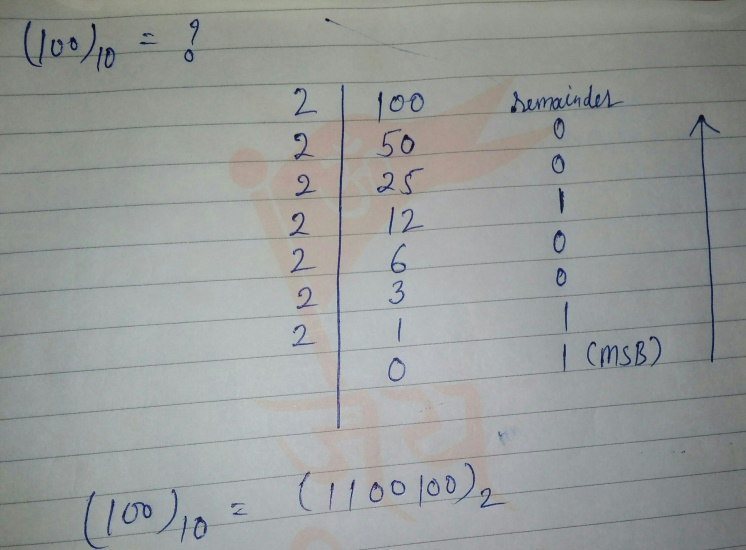 (100)10 = ?
2 | 100 remainder
2 | 50 0
2 | 25 0
2 | 12 1
2 | 6 0
2 | 3 0
2 | 1 1
0 1 (MSB)
(100)10 = (1100100)2